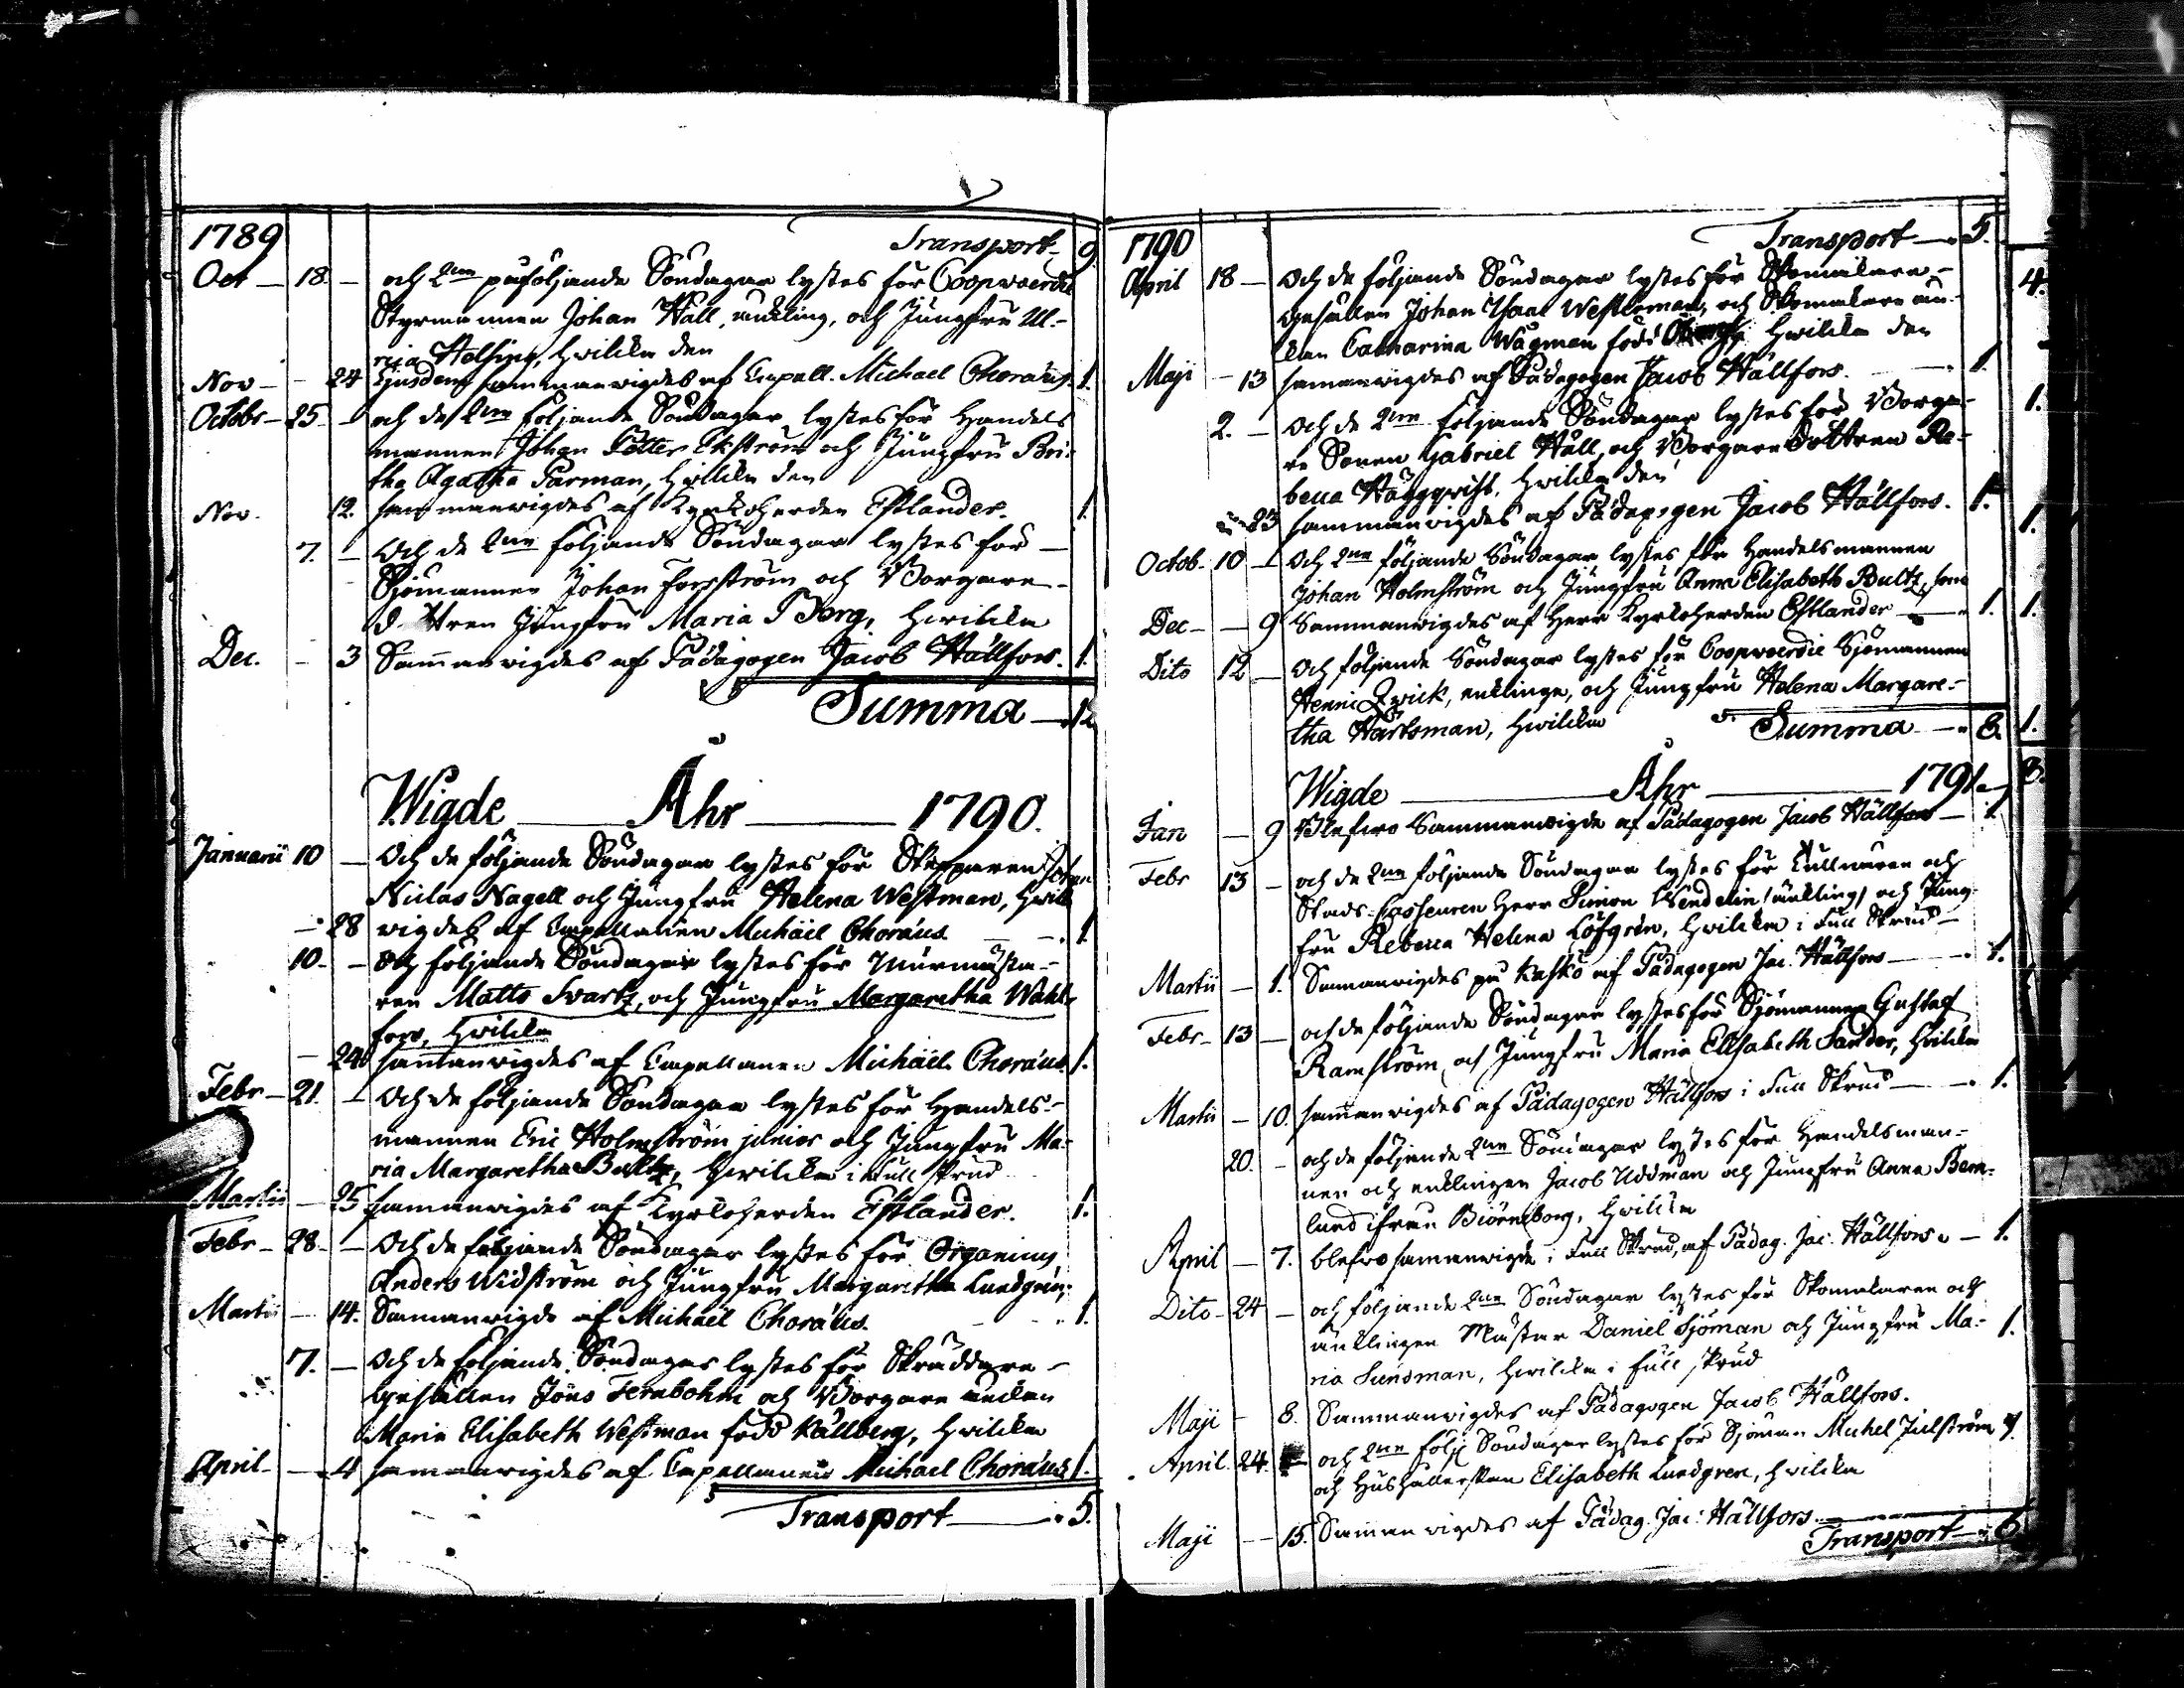 1789 Transport 9
Oct 18 och 2ne påföljande Söndagar lystes för Coopvaerdie
Styrmannen Johan Häll, änkling, och Jungfru Ul-
rica Helsing, hwilka den
Nov 24 Ejusdem sammanwigdes af Capell. Michael Choræus. 1.
Octobr 25 och de 2ne följande Söndagar lystes för Handels
mannen Johan Petter Ekström och Jungfru Bri-
tha Agatha Parman, hwilka den
Nov. 12. sammanwigdes af Kyrkoherden Estlander. 1.
7. Och de 2ne följande Söndagar lystes för
Sjömannen Johan Forsström och Borgare
d ttren Jungfru Maria Berg, hwilka
Dec. 3 Sammanwigdes af Pädagogen Jacob Hällfors. 1.
Summa 12
Wigde Åhr 1790.
Januarii 10 Och de följande Söndagar lystes för Skepparen Johan
Niclas Nagell och Jungfru Helena Westman, hwilk
28 wigdes af Capellanen Michäel Choräus 1.
10 Och följande Söndagar lystes för Murmästa-
ren Matts Svartz, och Jungfru Margaretha Wahl-
fors, hwilka
24 sammanwigdes af Capellanen Michäel Choräus 1.
Febr 21. Och de följande Söndagar lystes för Handels-
mannen Eric Holmström junior och Jungfru Ma-
ria Margaretha Bultz, hwilka i full skrud
Martii 25 sammanwigdes af Kyrkoherden Estlander. 1.
Febr 28 Och de följande Söndagar lystes för Organisten
Anders Widström och Jungfru Margaretha Lundgren;
Martii 14. Sammanwigde af Michäel Choräus. 1.
7. Och de följande Söndagar lystes för Skräddare
Gesällen Jöns Fernbohm och Borgare enkan
Maria Elisabeth Westman född Källberg, hwilka
April 4 sammanwigdes af Capellanen Michael Choräus 1.
Transport 5.
1790 Transport 5.
April 18 Och de följande Söndagar lystes för Skomakare
gesällen Johan Isaac Westerman, och Skomakare än-
kan Catharina Wägman född hwilka den
Maji 13 sammanwigdes af Pädagogen Jacob Hällfors. 1.
2. Och de 2ne följande Söndagar lystes för Borga-
re Sonen Gabriel Häll, och Borgare Dottren Re-
becca Häggqvist, hwilka den
23 sammanwigdes af Pädagogen Jacob Hällfors. 1.
Octob. 10 Och 2ne följande Söndagar lystes för Handelsmannen
Johan Holmström och Jungfru Anna Elisabeth Bultz, som
Dec 9 Sammanwigdes af Herr Kyrkoherden Estlander 1.
Dito 12 Och följande Söndagar lystes för Coopvaerdie Sjömannen
Henric Qvick, enklinge, och Jungfru Helena Margare-
tha Hartsman, hwilka Summa 8.
Wigde Åhr 1791
Jan 9 Blefwo Sammanwigde af Pädagogen Jacob Hällfors 1
Febr 13 och de 2ne följande Söndagar lystes för Tullnären och
Stads-Casseuren Herr Simon Wendelin (änkling) och Jung-
fru Rebecca Helena Löfgrén, hwilka i Full Skrud
Martii 1. Sammanwigdes på Kaskö af Pädagogen Jac. Hällfors 1.
Febr 13 och de följande Söndagar lystes för Sjömannen Gustaf
Ramström, och Jungfru Maria Elisabeth Sander, hwilka
Martii 10. sammanwigdes af Pädagogen Hällfors i Full Skrud 1.
20. och de följande 2ne Söndagar lystes för Handelsman-
nen och enklingen Jacob Uddman och Jungfru Anna Bern-
lund ifrån Biörneborg, hwilka
April 7. blefwo sammanwigde i Full Skrud, af Pädag. Jac: Hällfors 1.
Dito 24 och följande 2ne Söndagar lystes för Skomakaren och
änklingen Mästar Daniel Sjöman och Jungfru Ma-
ria Sundman, hwilka i full skrud
Maji 8. Sammanwigdes af Pädagogen Jacob Hällfors.
April 24. och 2ne följ. Söndagar lystes för Sjöman Michel Julström 1.
och Hushållerskan Elisabeth Lundgren, hwilka
Maji 15. Sammanwigdes af Pädag. Jac: Hällfors.
Transport 6
4.
1.
1.
1.
1.
8.